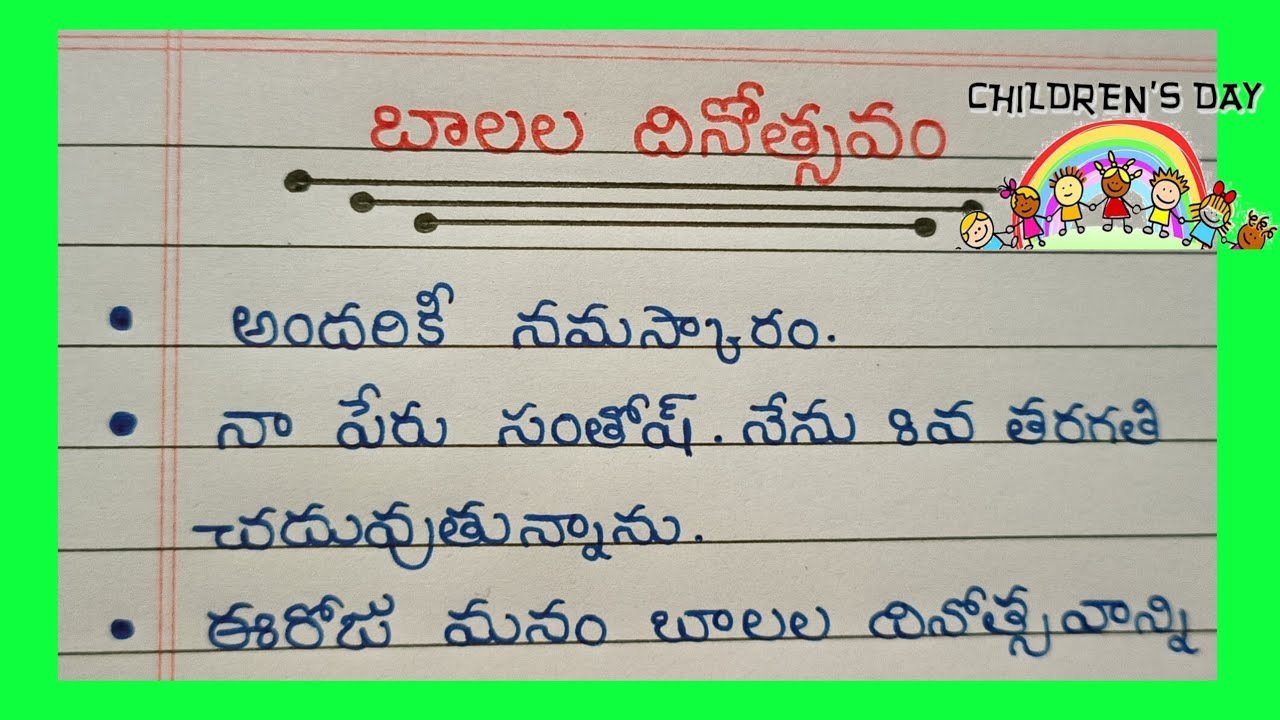 బాలల దినోత్సవం
CHILDREN'S DAY
• అందరికీ నమస్కారం.
• నా పేరు సంతోష్. నేను 8వ తరగతి
చదువుతున్నాను.
• ఈరోజు మనం బాలల దినోత్సవాన్ని